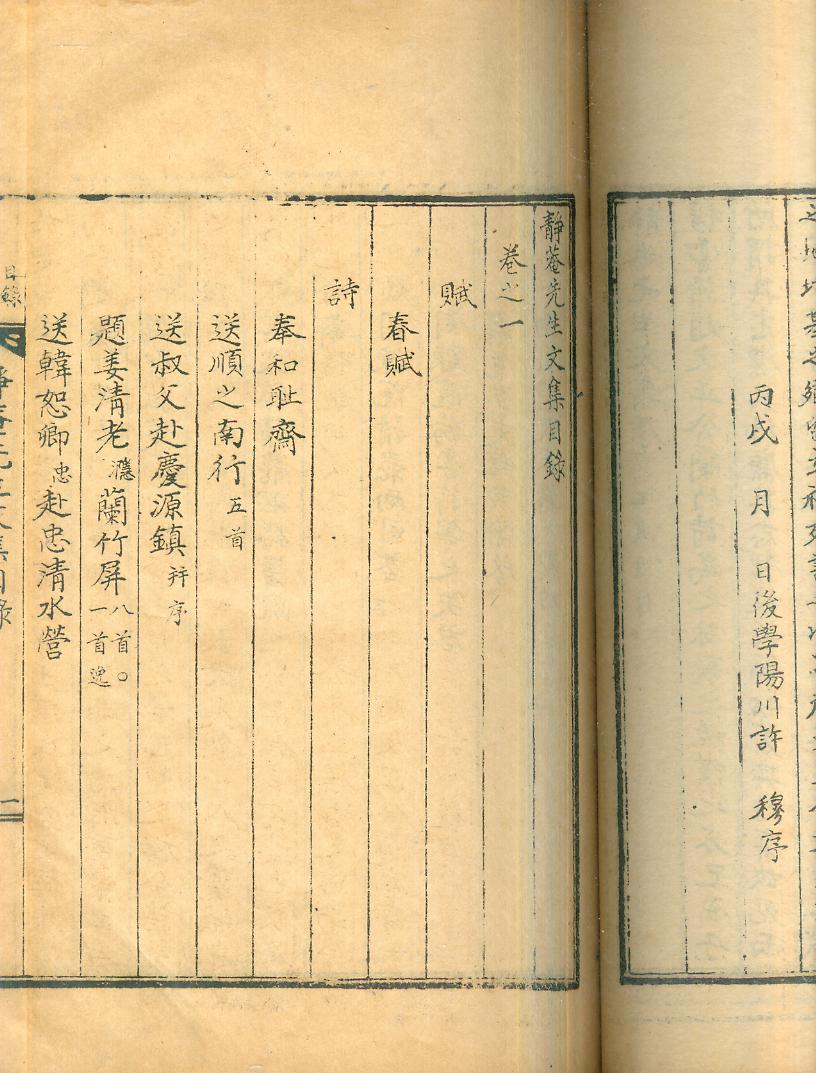 丙戌 月 日後學陽川許 穆序
靜菴先生文集目錄
卷之一
賦
春賦
詩
奉和耻齋
送順之南行五首
送叔父赴慶源鎭並序
題姜清老隱蘭竹屏八首○一首逸
送韓恕卿忠赴忠清水營
目錄